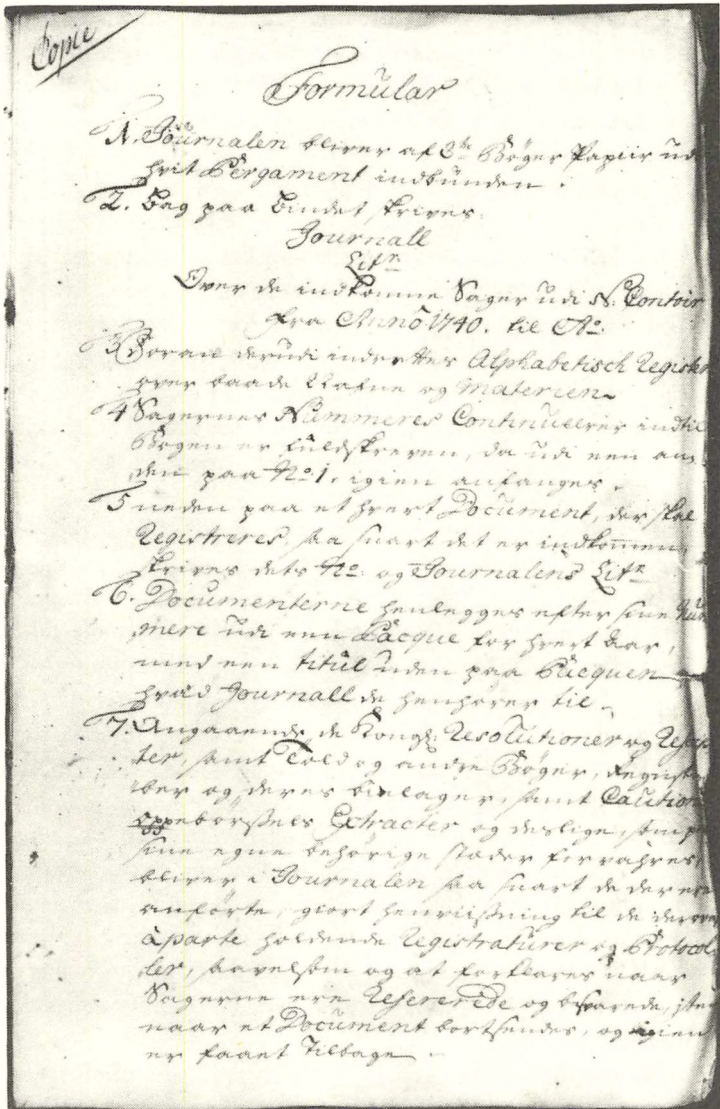 Copie
Formular
1. Journalen bliver af 3de Bøger Papiir ud
hvit Pergament indbunden.
2. Bag paa Bindet skrives.
Journall
Litr
Over de indkomne Sager udi N: Contoir
fra Anno 1740. til Ao:
3 Foran derudi indrettes Alphabetisch Regist
over baade Nafne og Materien
4 Sagernes Nummeres Continuerer indtil
Bogen er fuldskreven, da udi een an
den paa No: 1. igien anfanges.
5 neden paa et hvert Document, der skal
Registreres, saa snart det er indkommen,
skrives dets No: og Journalens Litr
6. Documenterne henlegges efter sine Num
mere udi een Pacque for hvert Aar,
med een titul uden paa Pacquen
hvad Journall de henhører til.
7. Angaaende de Kongl: Resolutioner og Rescr
ter, samt Told og andre Bøger, Regnsk
ber og deres bielager, samt Caution
oppebørsels Extracter og deslige, som p
sine egne behørige stæder forvahres,
bliver i Journalen saa snart de der ere
anførte, giort henviisning til de derover
àparte holdende Registraturer og Protocol
ler, saavelsom og at forklares naar
Sagerne ere Refererede og besvarede, it
naar et Document bortsendes, og igien
er faaet Tilbage